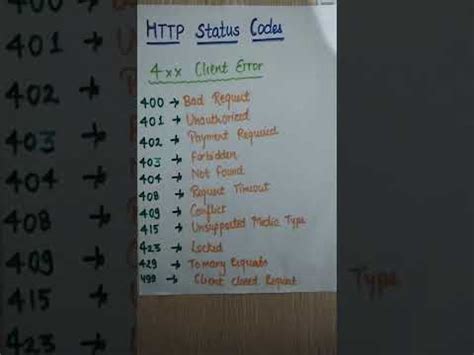 HTTP Status Codes
4xx Client Error
400 → Bad Request
401 → Unauthorized
402 → Payment Required
403 → Forbidden
404 → Not Found
408 → Request Timeout
409 → Conflict
415 → Unsupported Media Type
423 → Locked
429 → To many Requests
499 → Client Closed Request
400
401
402
403
404
408
409
415
423
Type